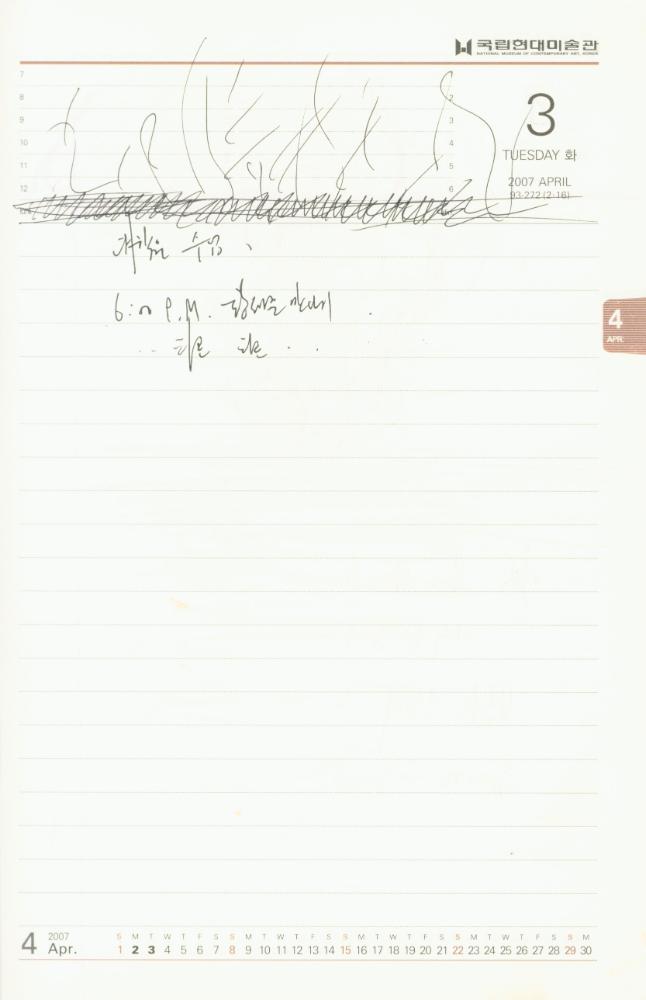 국립현대미술관
NATIONAL MUSEUM OF CONTEMPORARY ART, KOREA
7
8
9
10
11
12
2
3
4
5
6
3
TUESDAY 화
2007 APRIL
93-272 (2·16)
대학원 수업
6:00 P.M.
4
APR.
4 2007 Apr.
S M T W T F S S M T W T F S S M T W T F S S M T W T F S S M
1 2 3 4 5 6 7 8 9 10 11 12 13 14 15 16 17 18 19 20 21 22 23 24 25 26 27 28 29 30